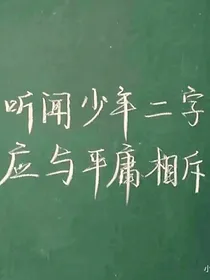 听闻少年二字
应与平庸相斥
小